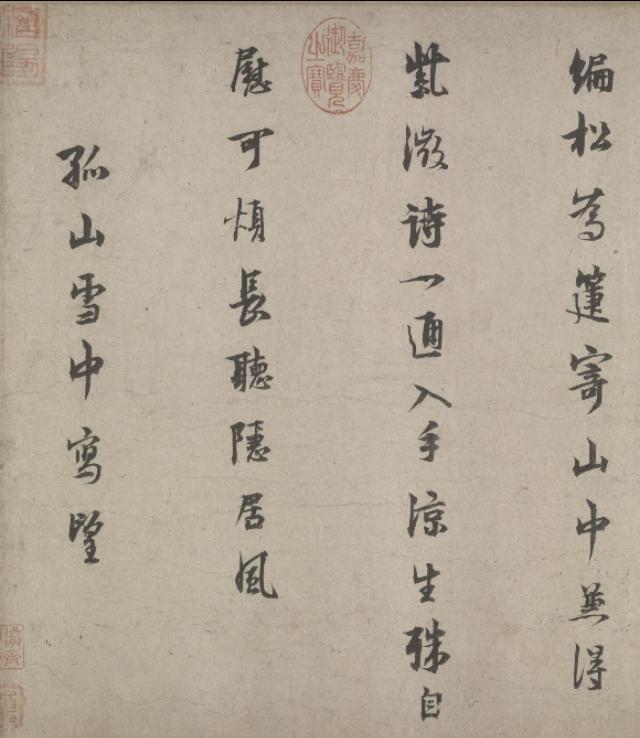 編松為箑寄山中兼得
紫微詩一通入手涼生殊自
慰可煩長聽隱居風
孤山雪中寫望
嘉慶御覽之寶